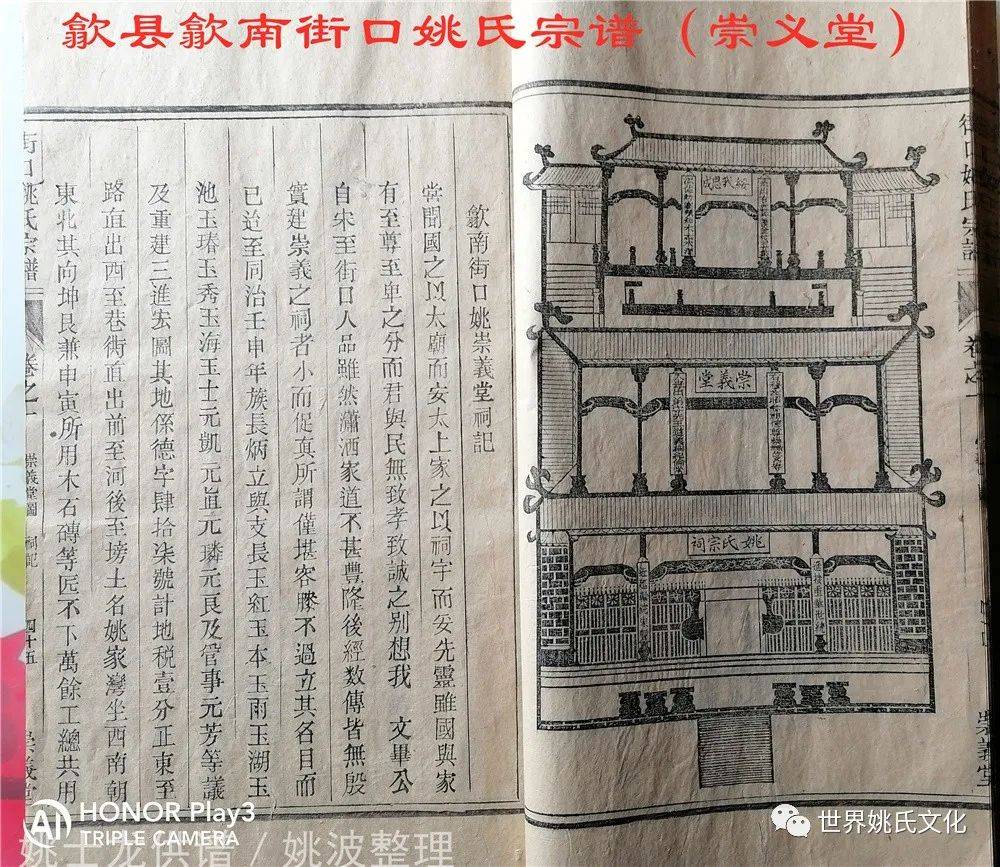 歙县歙南街口姚氏宗谱（崇义堂）
歙南街口姚崇義堂祠記
嘗聞國之以太廟而安太上家之以祠宇而安先靈雖國與家
有至尊至卑之分而君與民無致孝致誠之别想我 文畢公
自宋至街口人品雖然瀟洒家道不甚豊隆後經数傳皆無殷
實建崇義之祠者小而促真所謂僅堪容膝不過立其名目而
已迨至同治壬申年族長炳立與支長玉紅玉本玉雨玉湖玉
池玉瑃玉秀玉海玉士元凱元嵐元璘元艮及管事元芳等議
及重建三進宏圖其地係德字肆拾柒號計地税壹分正東至
路直出西至巷街直出前至河後至塝土名姚家灣坐西南朝
東北其向坤艮兼申寅所用木石磚等匠不下萬餘工總共用
街口姚氏宗譜
卷之一
崇義堂圖 祠記
四十五
崇義堂
街口姚氏宗譜
卷之一
崇義堂
崇義堂
姚氏宗祠
AI HONOR Play3
TRIPLE CAMERA
姚士龙供谱 / 姚波整理
世界姚氏文化